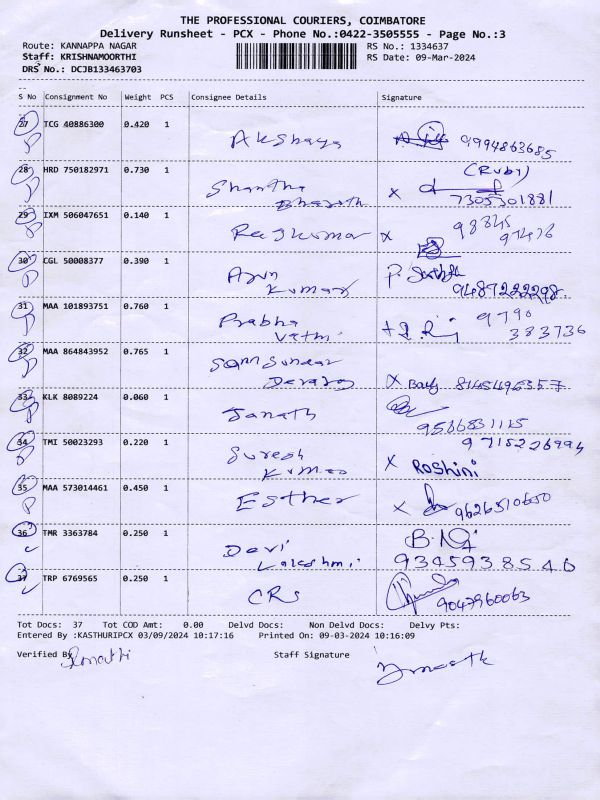 THE PROFESSIONAL COURIERS, COIMBATORE
Delivery Runsheet - PCX - Phone No.:0422-3505555 - Page No.:3
Route: KANNAPPA NAGAR RS No.: 1334637
Staff: KRISHNAMOORTHI RS Date: 09-Mar-2024
DRS No.: DCJB133463703
S No Consignment No Weight PCS Consignee Details Signature
27 TCG 40886300 0.420 1 Akshaya 9994863685
28 HRD 750182971 0.730 1 Shantha (Ruby)
Bharath x 7305301881
29 IXM 506047651 0.140 1 Rajkumar x 98845
97476
30 CGL 50008377 0.390 1 Arun
Kumar 9487222298.
31 MAA 101893751 0.760 1 Prabha 9790
Vathi 383736
32 MAA 864843952 0.765 1 Sam Sundar
Devaraj x
33 KLK 8089224 0.060 1 Janath
9566831115
34 TMI 50023293 0.220 1 Suresh 9715226994
Kumar x Roshini
35 MAA 573014461 0.450 1 Esther x 9626510650
36 TMR 3363784 0.250 1 Devi
Lakshmi 9345938540
37 TRP 6769565 0.250 1 CRS 9047960063
Tot Docs: 37 Tot COD Amt: 0.00 Delvd Docs: Non Delvd Docs: Delvy Pts:
Entered By :KASTHURIPCX 03/09/2024 10:17:16 Printed On: 09-03-2024 10:16:09
Verified By Staff Signature